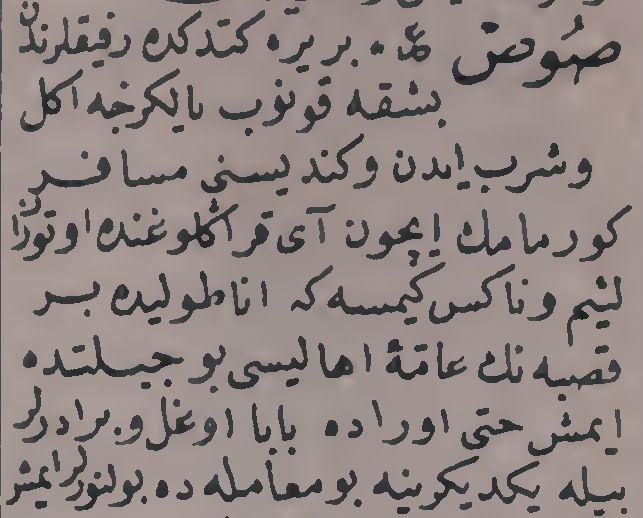 صُوص ع. بر يره كتدكده رفيقلرندن
بشقه قونوب يالكزجه اكل
وشرب ايدن وكنديسنى مسافر
كورمامك ايچون آى قراكلوغنده اوتوران
لئيم وناكس كيمسه كه اناطوليده بر
قصبه نك عامّهٔ اهاليسى بو جبلتده
ايمش حتى اوراده بابا اوغل و برادرلر
بيله يكديكرينه بو معامله ده بولنورلر ايمش